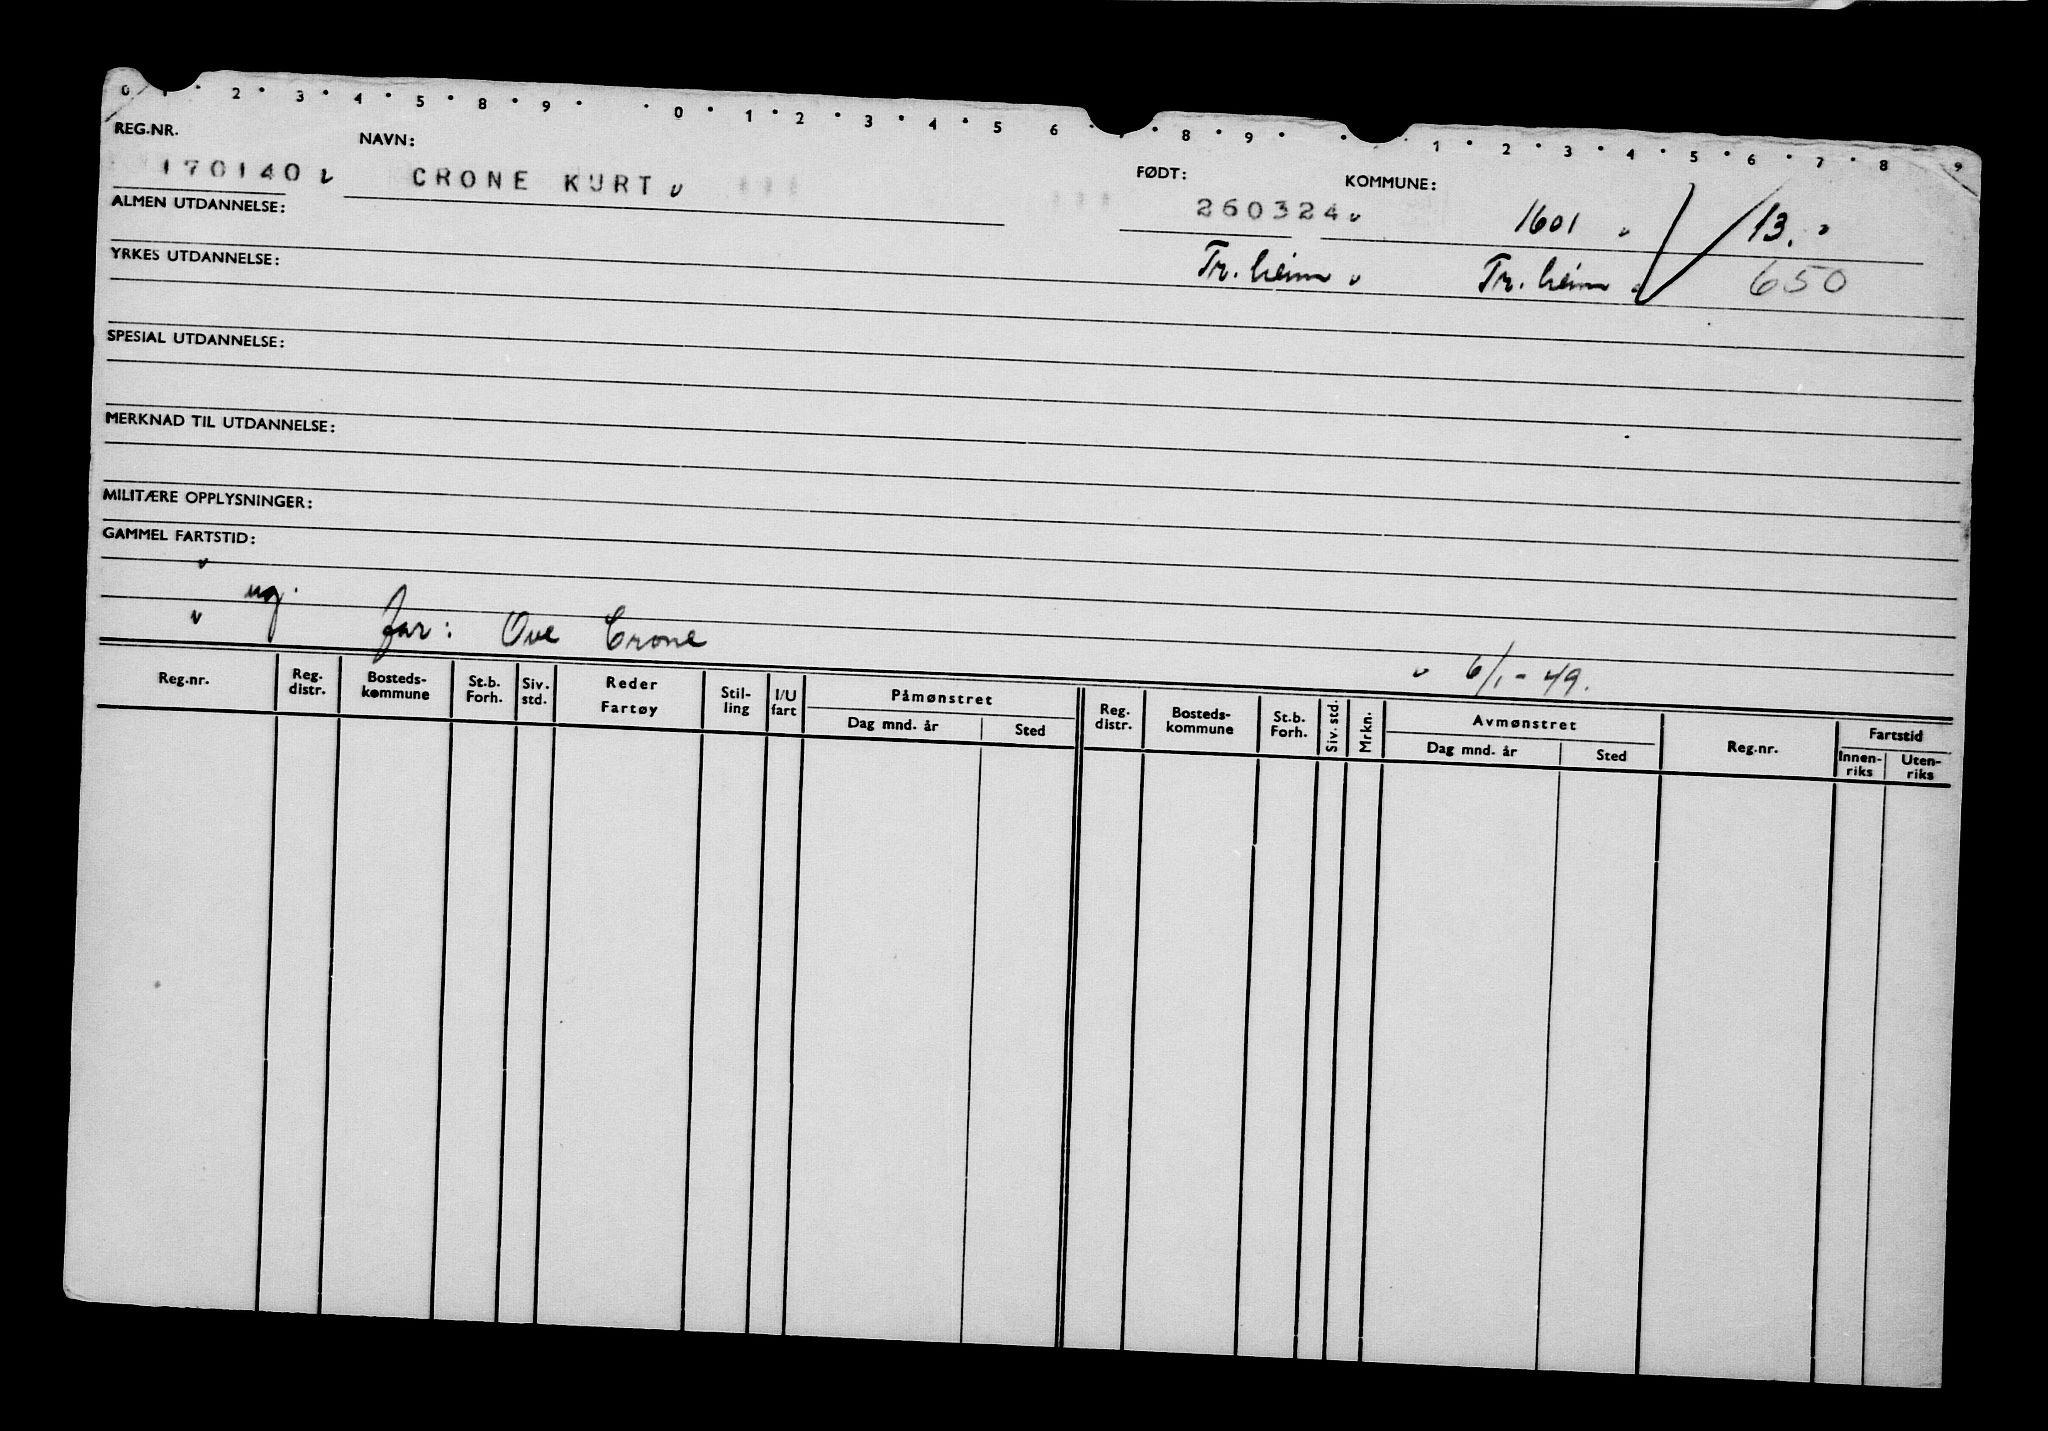 0 • 2 • 3 • 4 • 5 • 8 • 9 • • 0 • 1 • 2 • 3 • 4 • 5 6 • • 8 • 9 • • • 1 • 2 • 3 • 4 • 5 • 6 • 7 • 8 9
REG.NR. NAVN: FØDT: KOMMUNE:
170140 CRONE KURT 260324 1601 13.
ALMEN UTDANNELSE:
Tr.heim Tr.heim 650
YRKES UTDANNELSE:
SPESIAL UTDANNELSE:
MERKNAD TIL UTDANNELSE:
MILITÆRE OPPLYSNINGER:
GAMMEL FARTSTID:
ug. far: Ove Crone
6/1-49.
Reg.nr. Reg. distr. Bosteds-kommune St.b. Forh. Siv. std. Reder Fartøy Stil-ling I/U fart Påmønstret Dag mnd. år Sted Reg. distr. Bosteds-kommune St.b. Forh. Siv. std. Mrkn. Avmønstret Dag mnd. år Sted Reg.nr. Fartstid Innen-riks Uten-riks